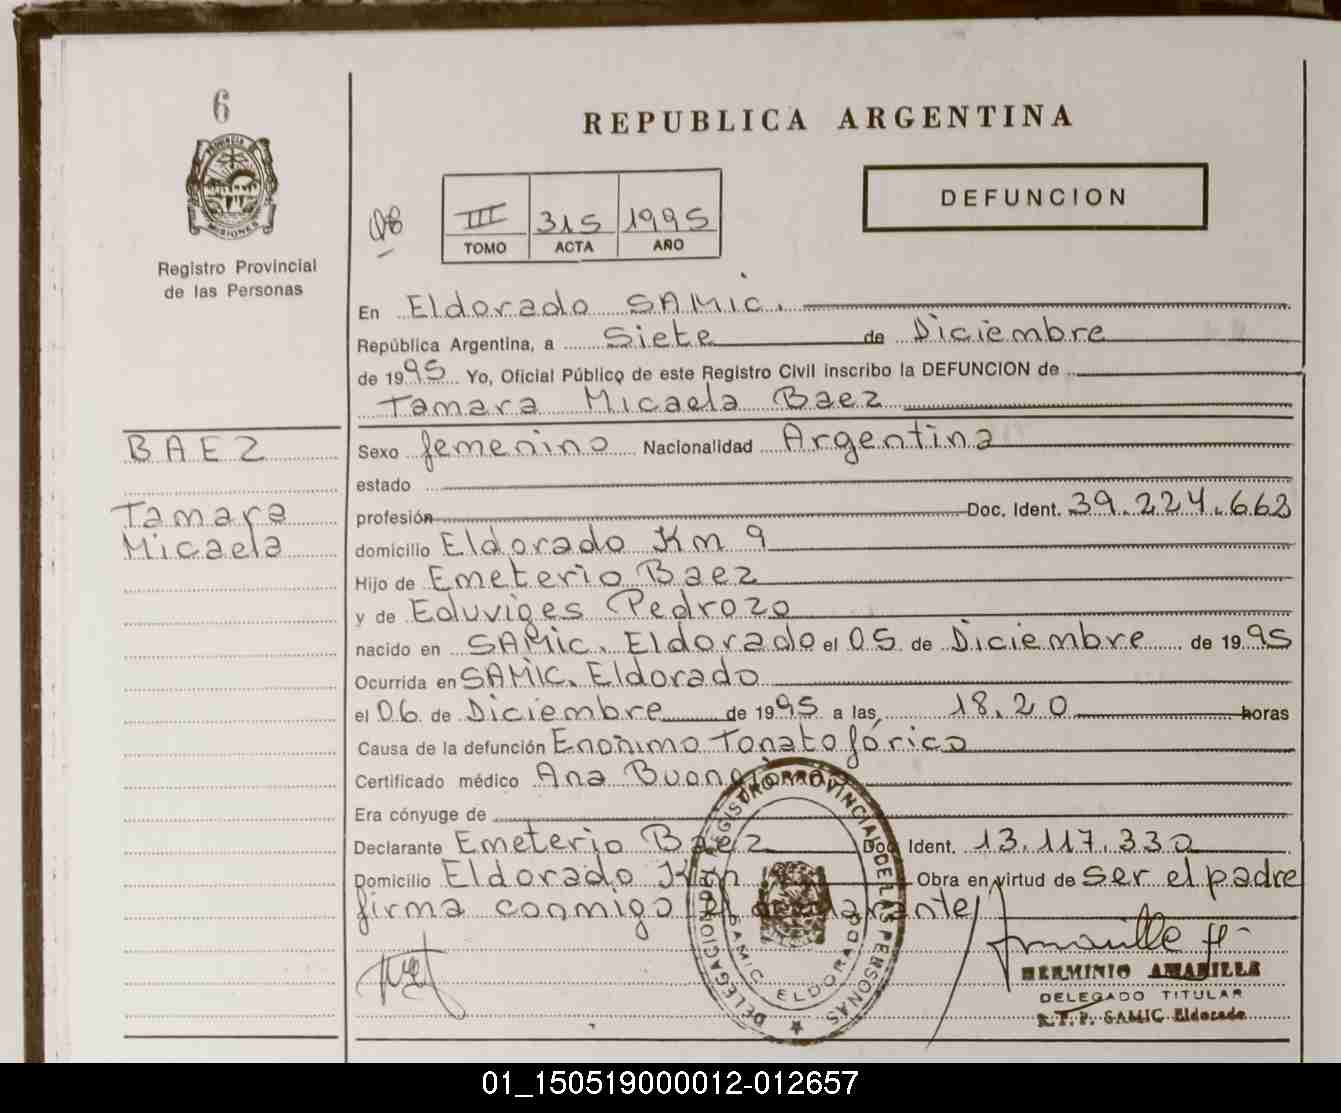 6
PROVINCIA DE
MISIONES
Registro Provincial
de las Personas
REPUBLICA ARGENTINA
III 315 1995
TOMO ACTA AÑO
DEFUNCION
En Eldorado SAMIC.
República Argentina, a Siete de Diciembre
de 1995 Yo, Oficial Público de este Registro Civil inscribo la DEFUNCION de
Tamara Micaela Baez
BAEZ
Tamara
Micaela
Sexo femenino Nacionalidad Argentina
estado
profesión Doc. Ident. 39.224.662
domicilio Eldorado Km 9
Hijo de Emeterio Baez
y de Eduviges Pedrozo
nacido en SAMic. Eldorado el 05 de Diciembre de 1995
Ocurrida en SAMIC. Eldorado
el 06 de Diciembre de 1995 a las 18.20 horas
Causa de la defunción Enonimo Tonatofórico
Certificado médico Ana
Era cónyuge de
Declarante Emeterio Baez Doc Ident. 13.117.330
Domicilio Eldorado Km Obra en virtud de ser el padre
firma conmigo el declarante
DELEGACION DEL REGISTRO PROVINCIAL DE LAS PERSONAS
SAMIC ELDORADO
HERMINIO AMARILLA
DELEGADO TITULAR
R.T.P. SAMIC Eldorado
01_150519000012-012657